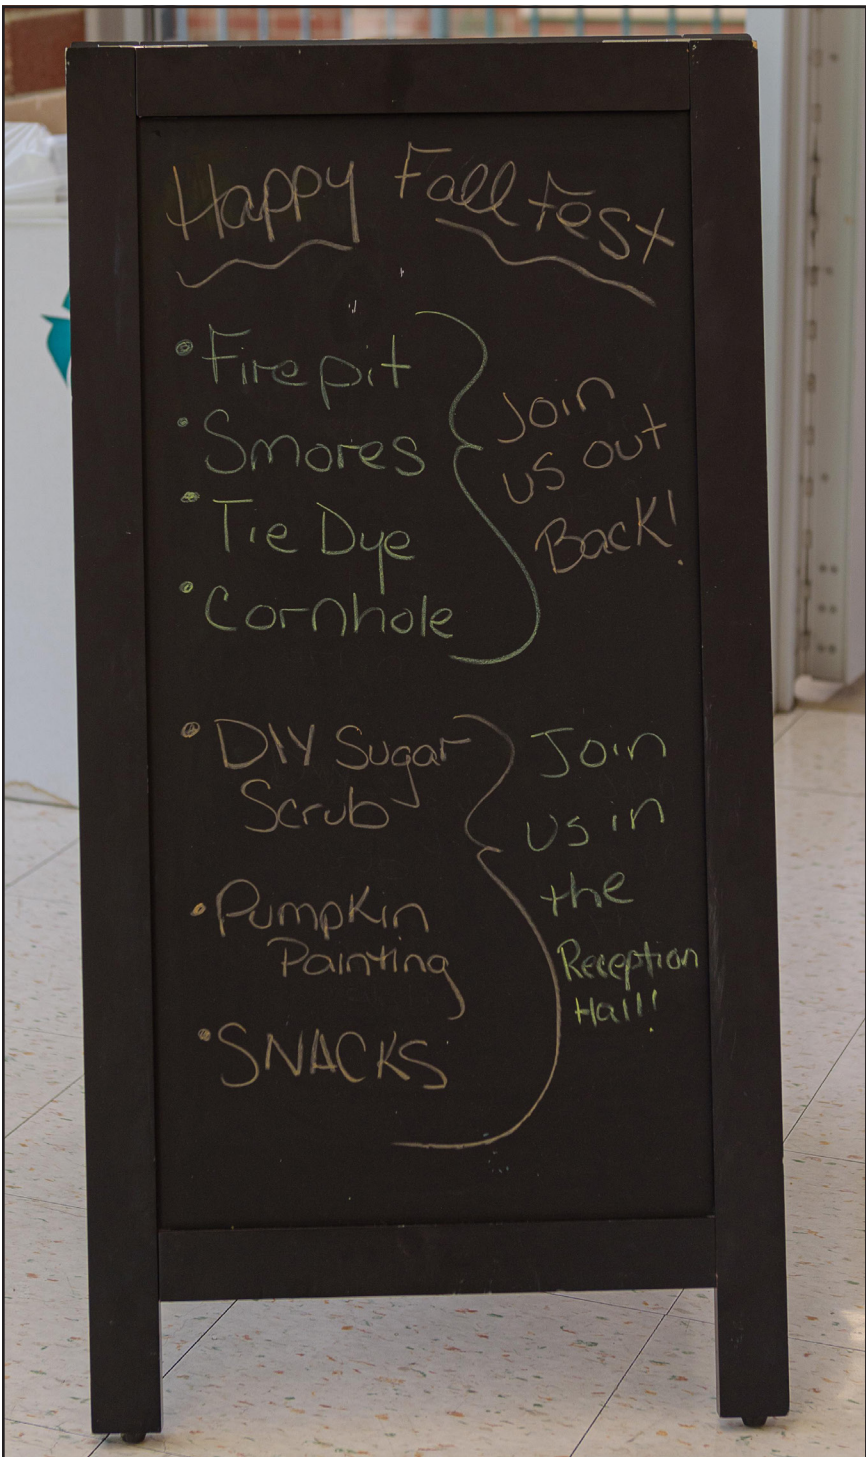 Happy Fall Fest
• Fire pit
• Smores
• Tie Dye
• Cornhole
Join
us out
Back!
• DIY Sugar
Scrub
• Pumpkin
Painting
• SNACKS
Join
us in
the
Reception
Hall!